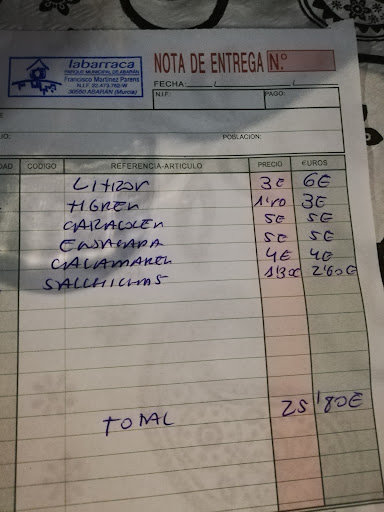 labarraca
PARQUE MUNICIPAL DE ABARÁN
Francisco Martínez Parens
N.I.F. 22.473.762-W
30550 ABARÁN (Murcia)
NOTA DE ENTREGA Nº
FECHA: / /
N.I.F. PAGO:
POBLACION:
DAD CODIGO REFERENCIA-ARTICULO PRECIO €UROS
LITRON 3€ 6€
TIGREN 3€
CARACOLEN 5€ 5€
ENSALADA 5€ 5€
CALAMAREN 4€ 4€
SALCHICHAS 1'30€ 2'60€
TOTAL 25'80€